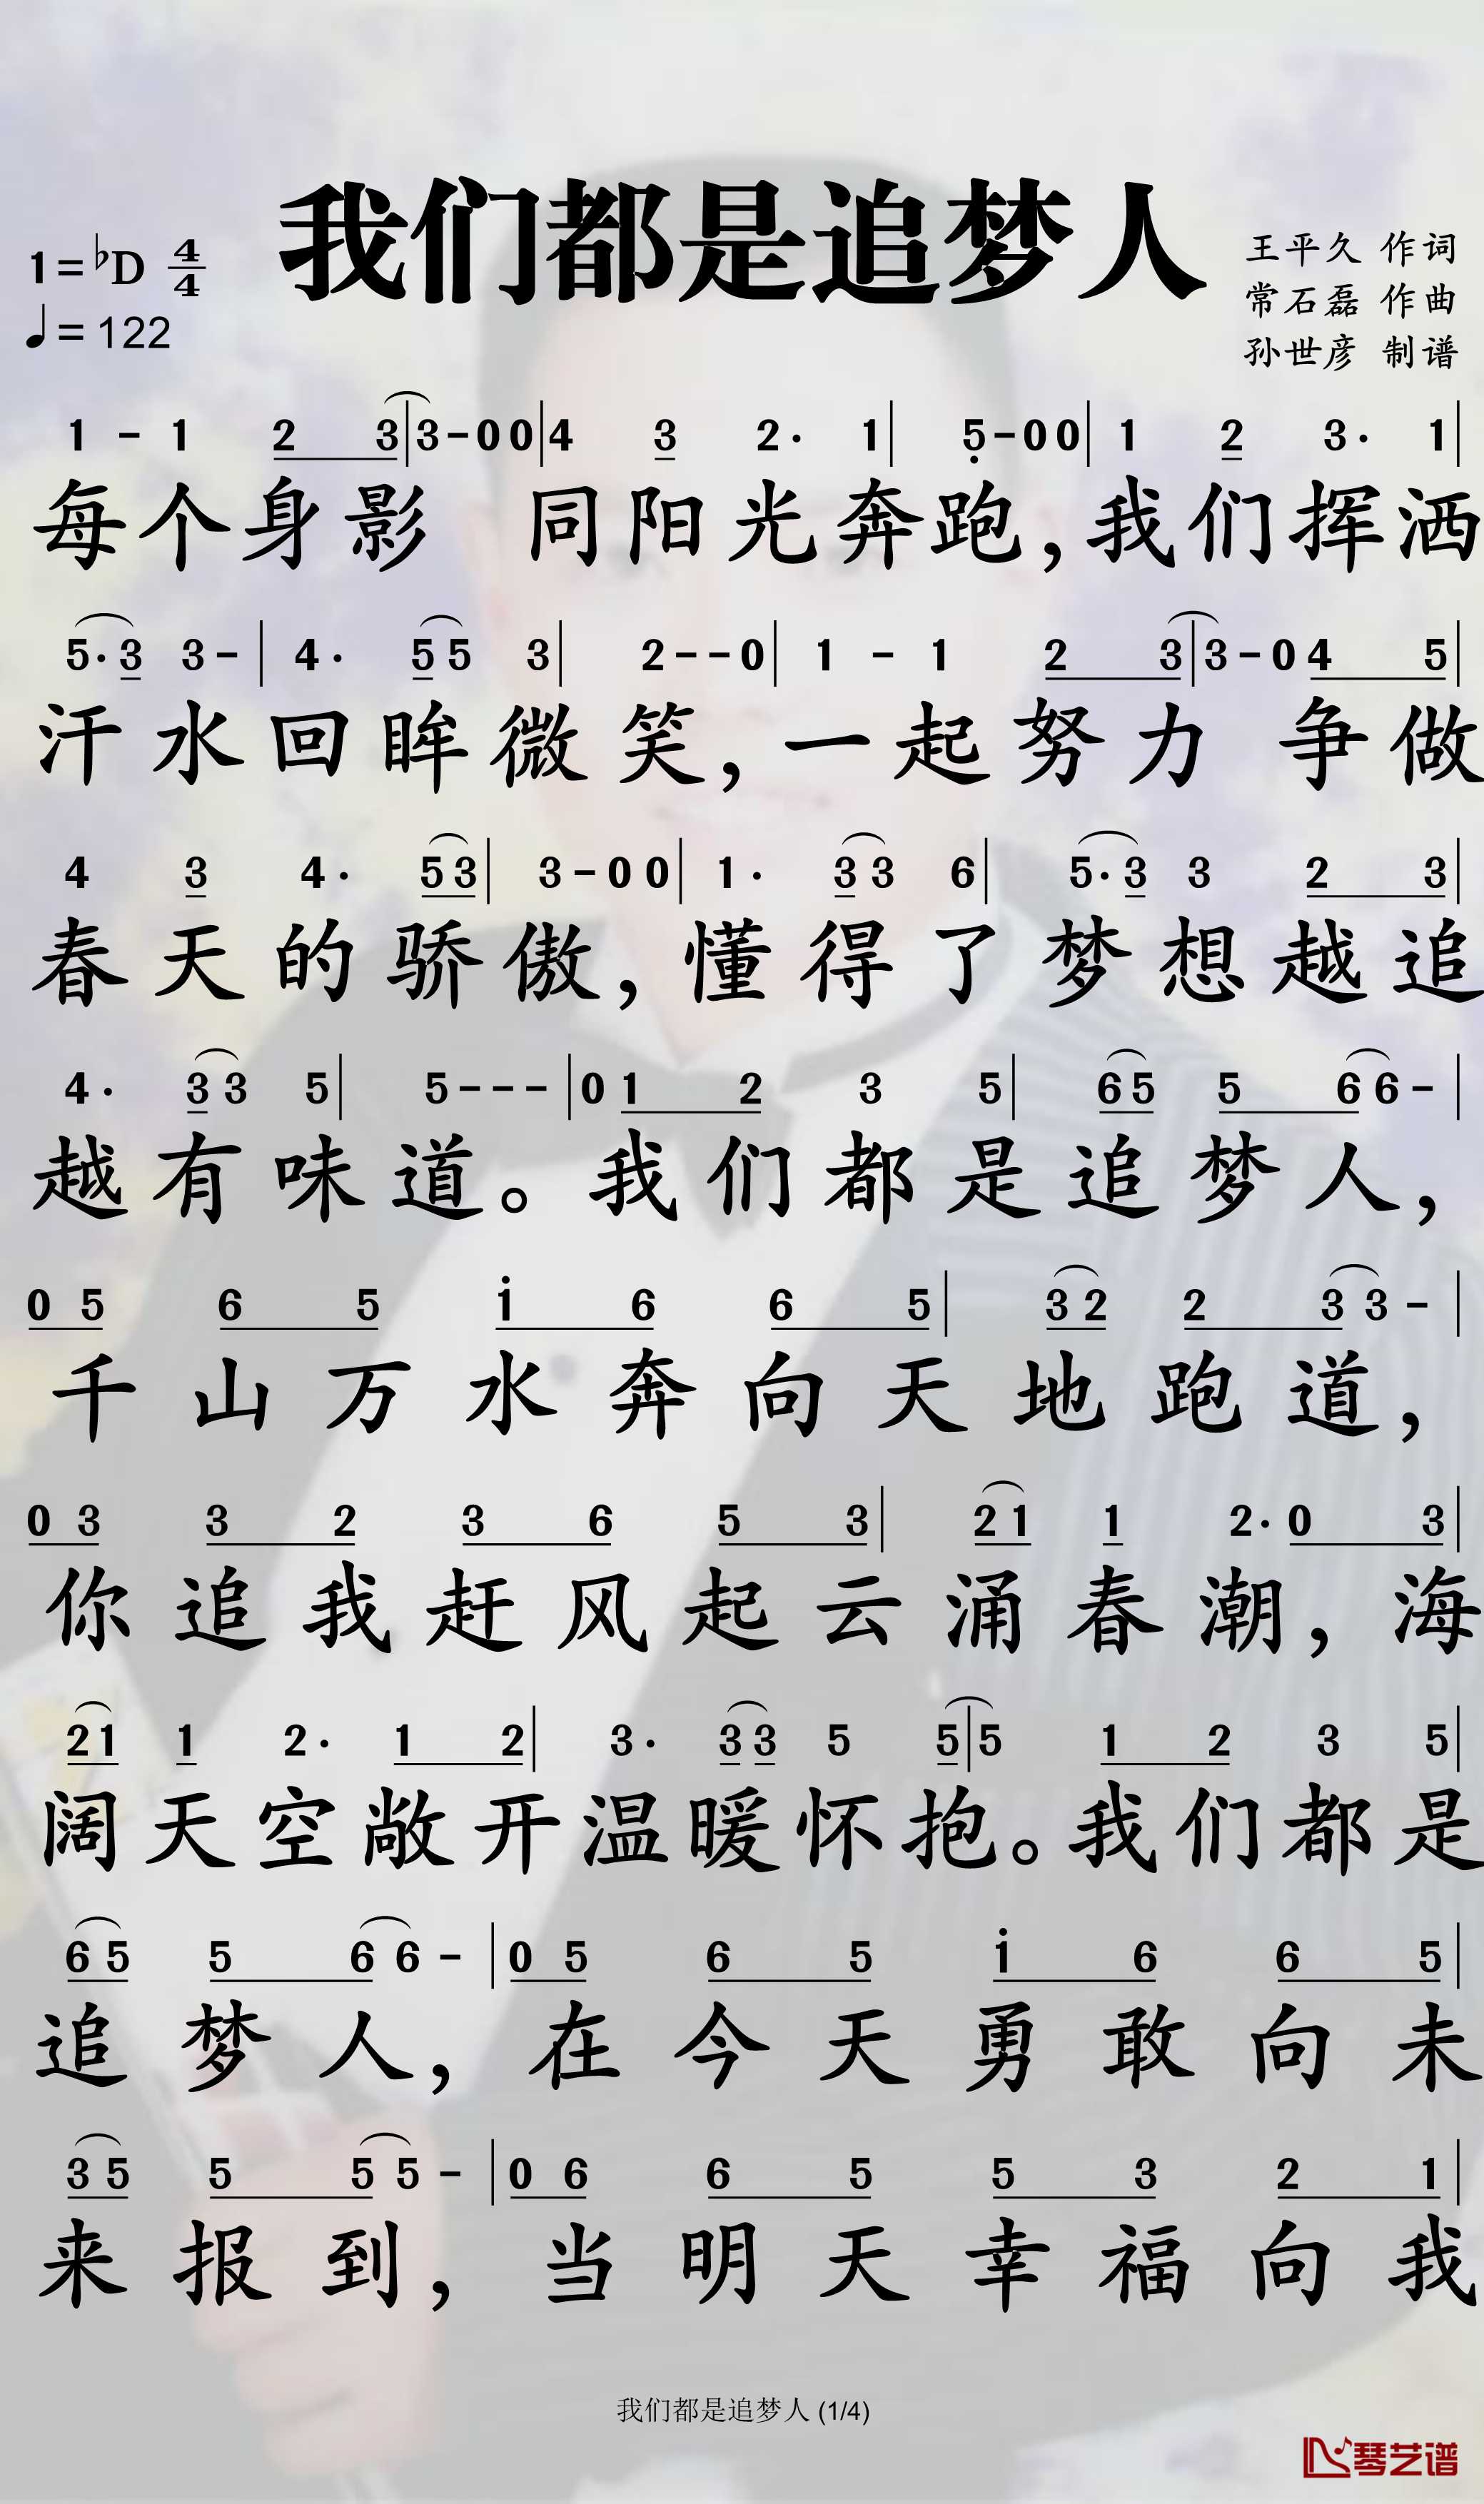 我们都是追梦人
1=♭D 4/4
♩=122
王平久 作词
常石磊 作曲
孙世彦 制谱
1 - 1 2 3|3-0 0|4 3 2· 1|5̣-0 0|1 2 3· 1|
每个身影 同阳光奔跑,我们挥洒
5·3 3-|4· 5 5 3|2--0|1 - 1 2 3|3-0 4 5|
汗水回眸微笑,一起努力 争做
4 3 4· 5 3|3-0 0|1· 3 3 6|5·3 3 2 3|
春天的骄傲,懂得了梦想越追
4· 3 3 5|5---|0 1 2 3 5|6 5 5 6 6-|
越有味道。我们都是追梦人,
0 5 6 5 1̇ 6 6 5|3 2 2 3 3-|
千山万水奔向天地跑道,
0 3 3 2 3 6 5 3|2 1 1 2·0 3|
你追我赶风起云涌春潮,海
2 1 1 2· 1 2|3· 3 3 5 5|5 1 2 3 5|
阔天空敞开温暖怀抱。我们都是
6 5 5 6 6-|0 5 6 5 1̇ 6 6 5|
追梦人,在今天勇敢向未
3 5 5 5 5-|0 6 6 5 5 3 2 1|
来报到,当明天幸福向我
我们都是追梦人 (1/4)
琴艺谱